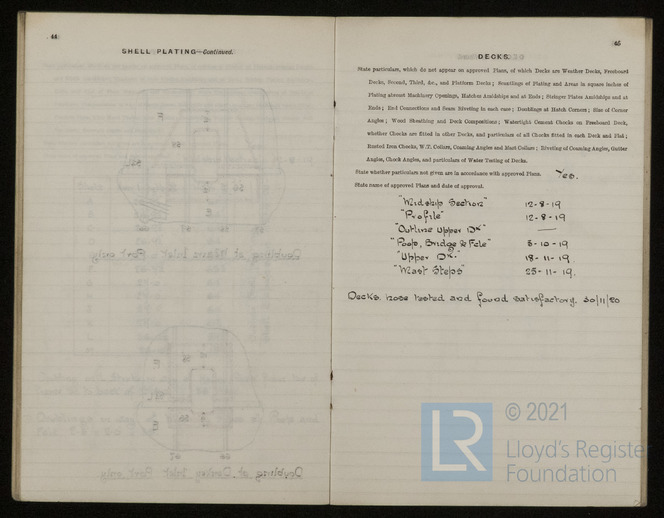 44
SHELL PLATING—Continued.
45
DECKS.
State particulars, which do not appear on approved Plans, of which Decks are Weather Decks, Freeboard
Decks, Second, Third, &c., and Platform Decks; Scantlings of Plating and Areas in square inches of
Plating abreast Machinery Openings, Hatches Amidships and at Ends; Stringer Plates Amidships and at
Ends; End Connections and Seam Riveting in each case; Doublings at Hatch Corners; Size of Corner
Angles; Wood Sheathing and Deck Compositions; Watertight Cement Chocks on Freeboard Deck,
whether Chocks are fitted in other Decks, and particulars of all Chocks fitted in each Deck and Flat;
Rusted Iron Chocks, W.T. Collars, Coaming Angles and Mast Collars; Riveting of Coaming Angles, Gutter
Angles, Chock Angles, and particulars of Water Testing of Decks.
State whether particulars not given are in accordance with approved Plans. Yes.
State name of approved Plans and date of approval.
"Midship Section" 12-8-19
"Profile" 12-8-19
"Outline Upper Dk" —
"Poop, Bridge & Fcle" 8-10-19
"Upper Dk." 18-11-19
"Mast Steps" 25-11-19.
Decks hose tested and found satisfactory. 30/11/20
© 2021
LR Lloyd's Register
Foundation